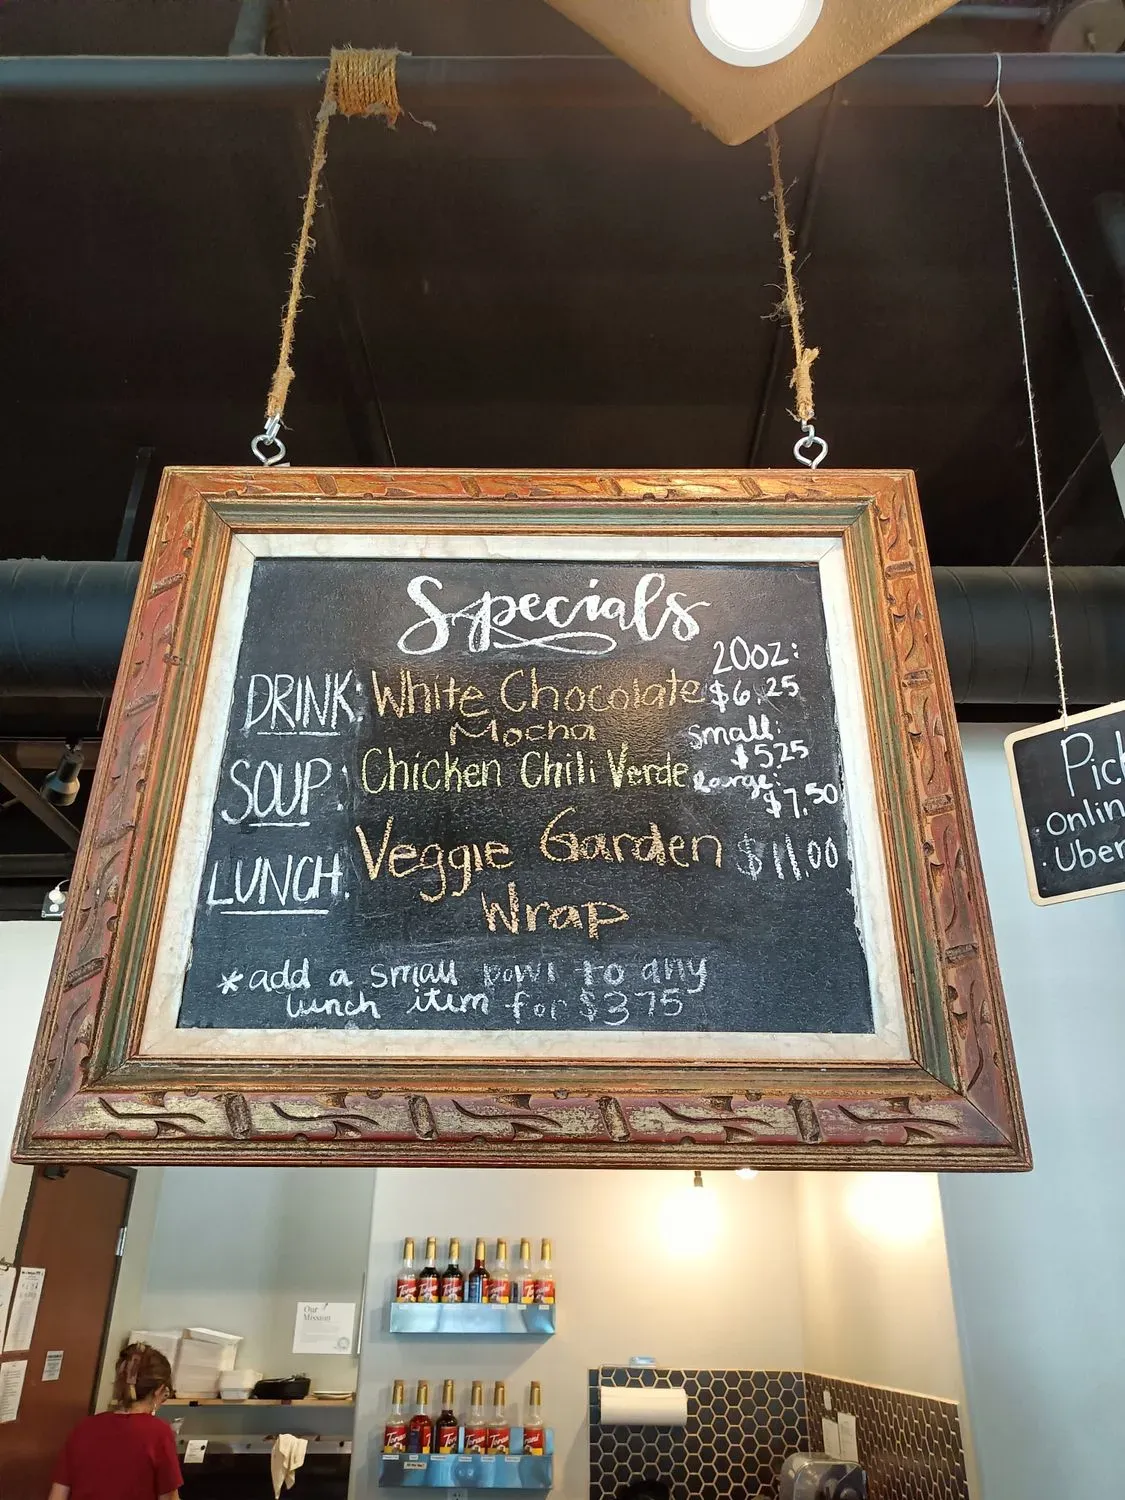 Specials
20oz:
DRINK: White Chocolate $6.25
Mocha
small:
$525
SOUP: Chicken Chili Verde
Large:
$7.50
LUNCH: Veggie Garden $11.00
Wrap
*add a small bowl to any
lunch item for $375
Pick
Onlin
Uber
Our
Mission
Torani